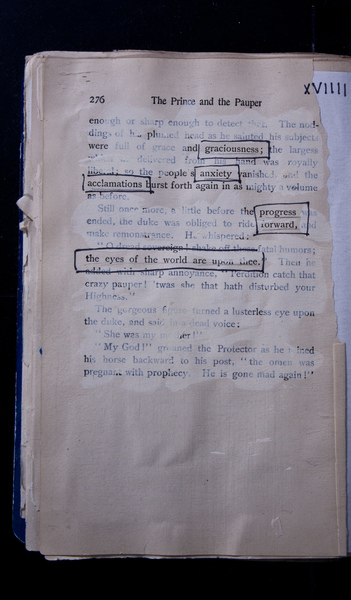 XVIIII
276 The Prince and the Pauper
enough or sharp enough to detect this. The nod-
dings of his plumed head as he saluted his subjects
were full of grace and graciousness; the largess
which he delivered from his hand was royally
liberal; so the people's anxiety vanished, and the
acclamations burst forth again in as mighty a volume
as before.
Still once more, a little before the progress was
ended, the duke was obliged to ride forward, and
make remonstrance. He whispered:
"O dread sovereign! shake off these fatal humors;
the eyes of the world are upon thee." Then he
added with sharp annoyance, "Perdition catch that
crazy pauper! 'twas she that hath disturbed your
Highness."
The gorgeous figure turned a lusterless eye upon
the duke, and said in a dead voice:
"She was my mother!"
"My God!" groaned the Protector as he reined
his horse backward to his post, "the omen was
pregnant with prophecy. He is gone mad again!"